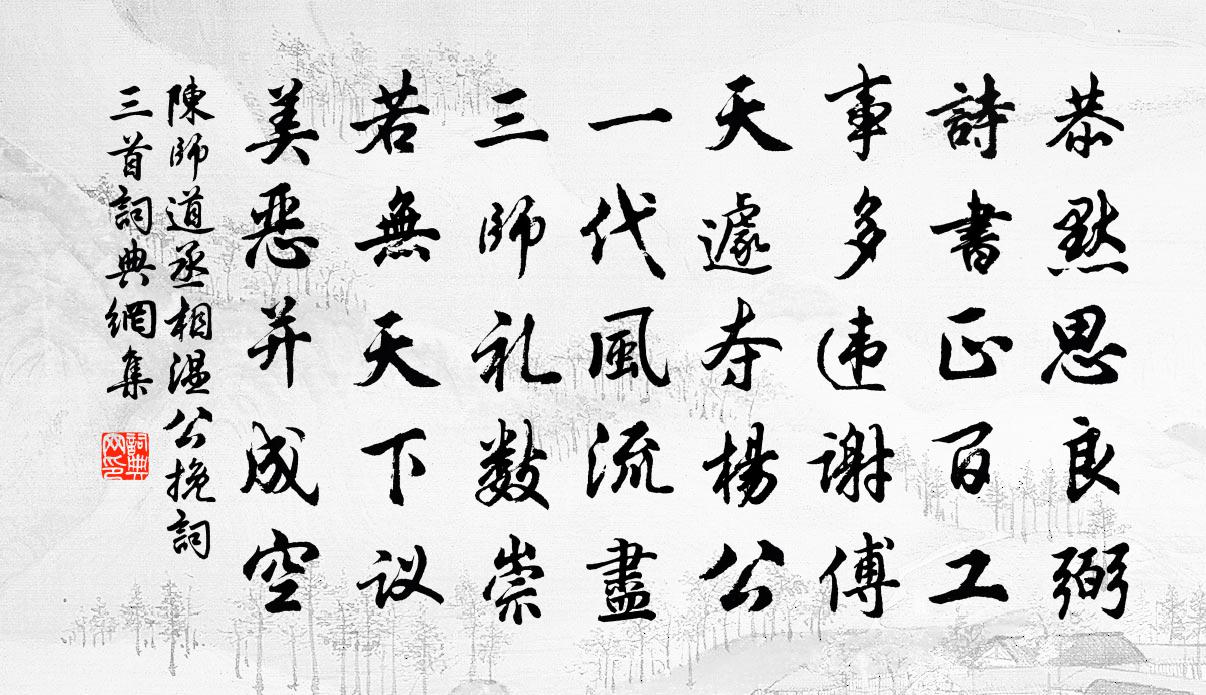 恭默思良弼
詩書正百工
事多违謝傅
天遽夺楊公
一代風流盡
三師礼数崇
若無天下议
美恶并成空
陳師道丞相温公挽詞
三首詞典網集
詞典网印